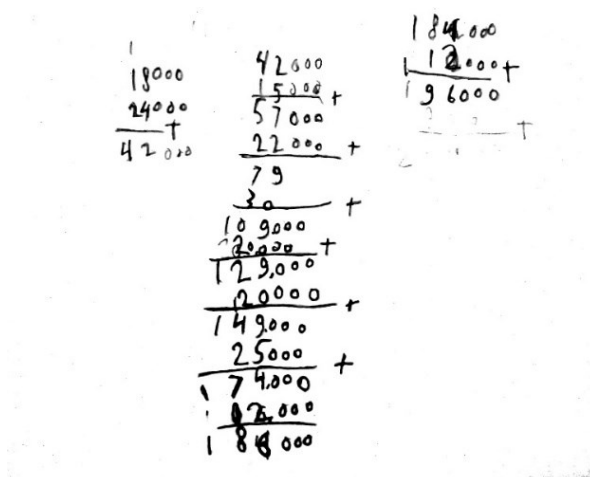 1
18000
24000
+
42000
42000
15000 +
57000
22000 +
79
30 +
109000
20.000 +
129,000
20000 +
149.000
25000 +
174.000
000
18 000
184000
112000+
196000
+